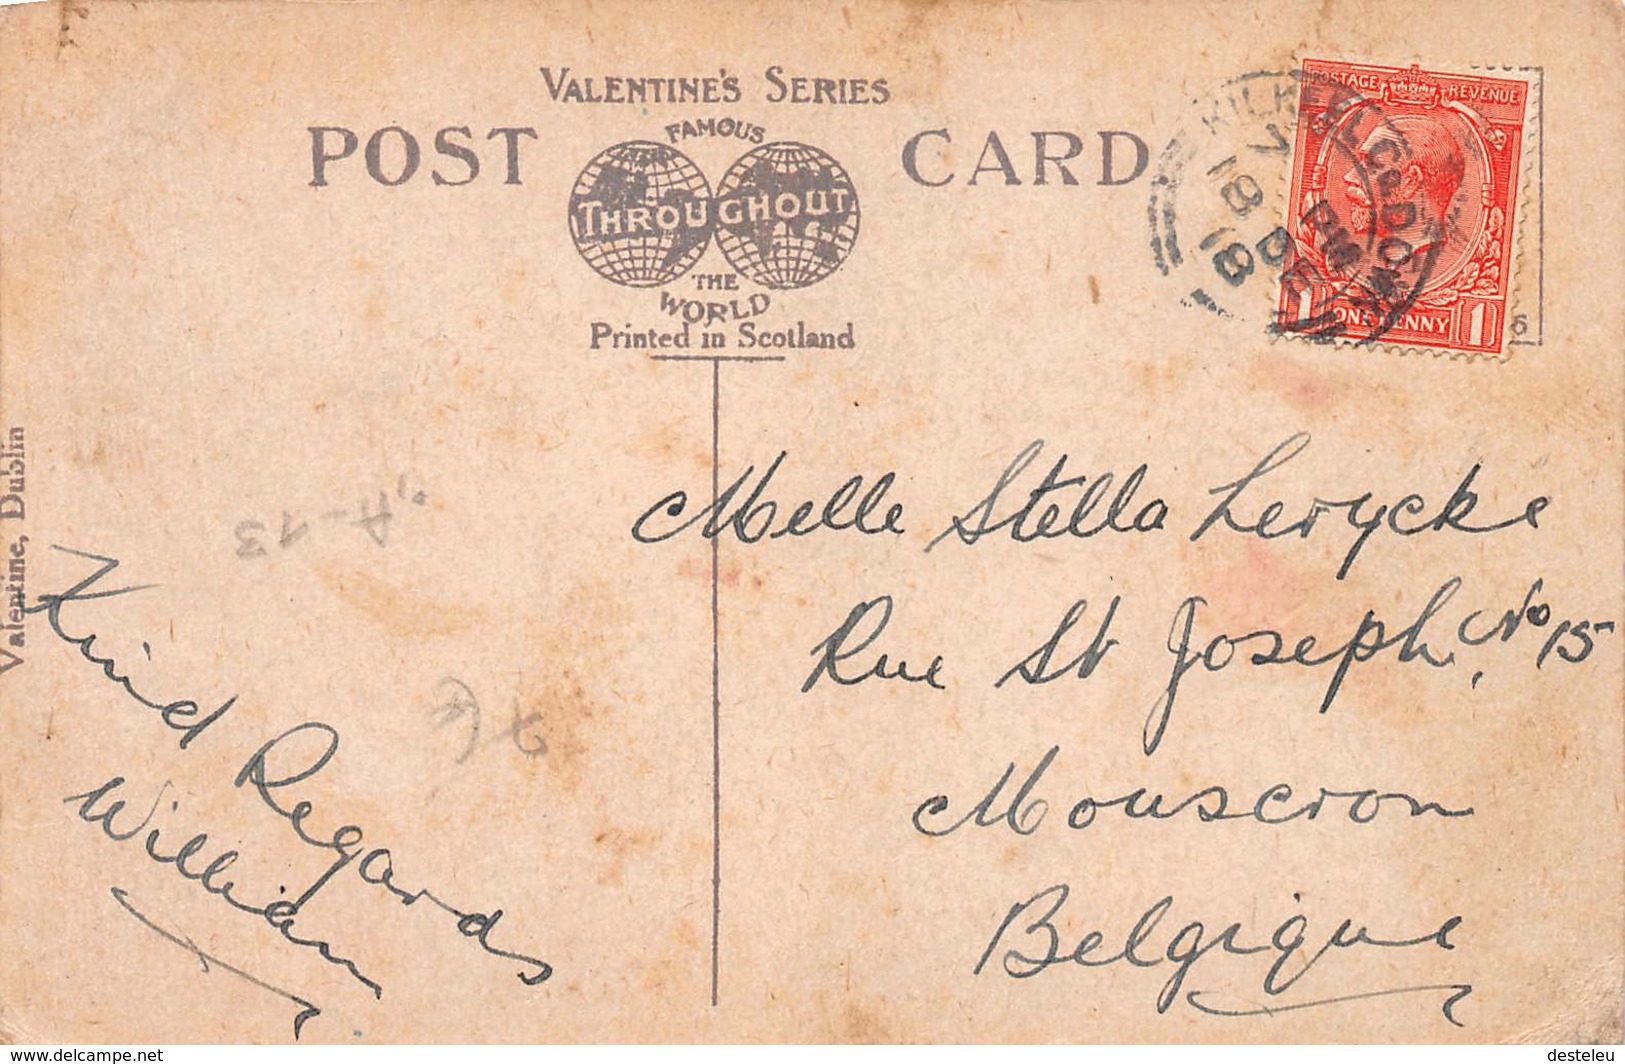 VALENTINE'S SERIES
POST CARD
FAMOUS
THROUGHOUT
THE
WORLD
Printed in Scotland
POSTAGE REVENUE
ONE PENNY
1 1
KILKEEL Co DOWN
Valentine, Dublin
Melle Stella Lerycke
Rue St Joseph, No 15
Mouscron
Belgique
Kind Regards
William
www.delcampe.net
desteleu